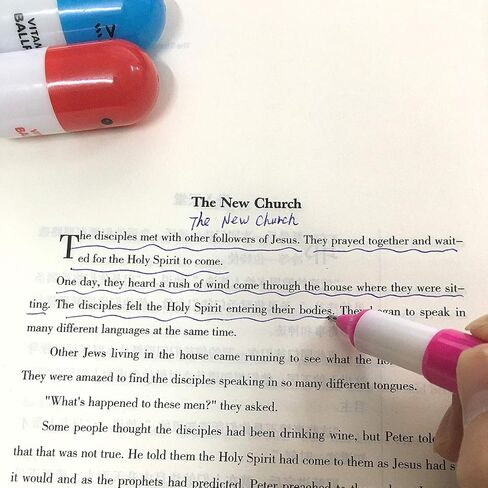 VITAM
BALLP
The New Church
The New Church
The disciples met with other followers of Jesus. They prayed together and wait-
ed for the Holy Spirit to come.
One day, they heard a rush of wind come through the house where they were sit-
ting. The disciples felt the Holy Spirit entering their bodies. to speak in
many different languages at the same time.
Other Jews living in the house came running to see what the
They were amazed to find the disciples speaking in so many different tongues.
"What's happened to these men?" they asked.
Some people thought the disciples had been drinking wine, but Peter
that that was not true. He told them the Holy Spirit had come to them as Jesus had
it would and as the prophets had predicted. Peter preached to